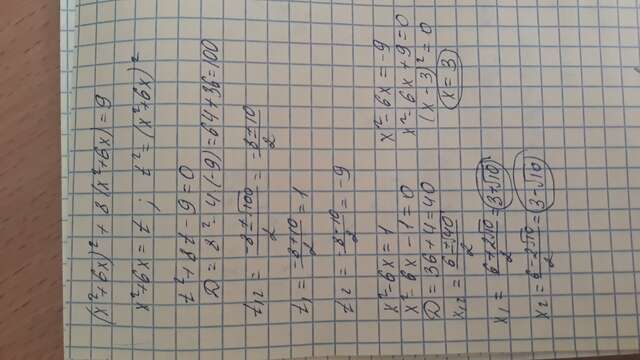 (x²+6x)² + 8(x²+6x) = 9
x²+6x = t ; t² = (x²+6x)²
t² + 8t - 9 = 0
D = 8² - 4(-9) = 64 + 36 = 100
t₁,₂ = (-8±√100)/2 = (-8±10)/2
t₁ = (-8+10)/2 = 1
t₂ = (-8-10)/2 = -9
x²-6x = 1
x²-6x-1 = 0
D = 36+4 = 40
x₁,₂ = (6±√40)/2
x₁ = (6+2√10)/2 = 3+√10
x₂ = (6-2√10)/2 = 3-√10
x²-6x = -9
x²-6x+9 = 0
(x-3)² = 0
x = 3